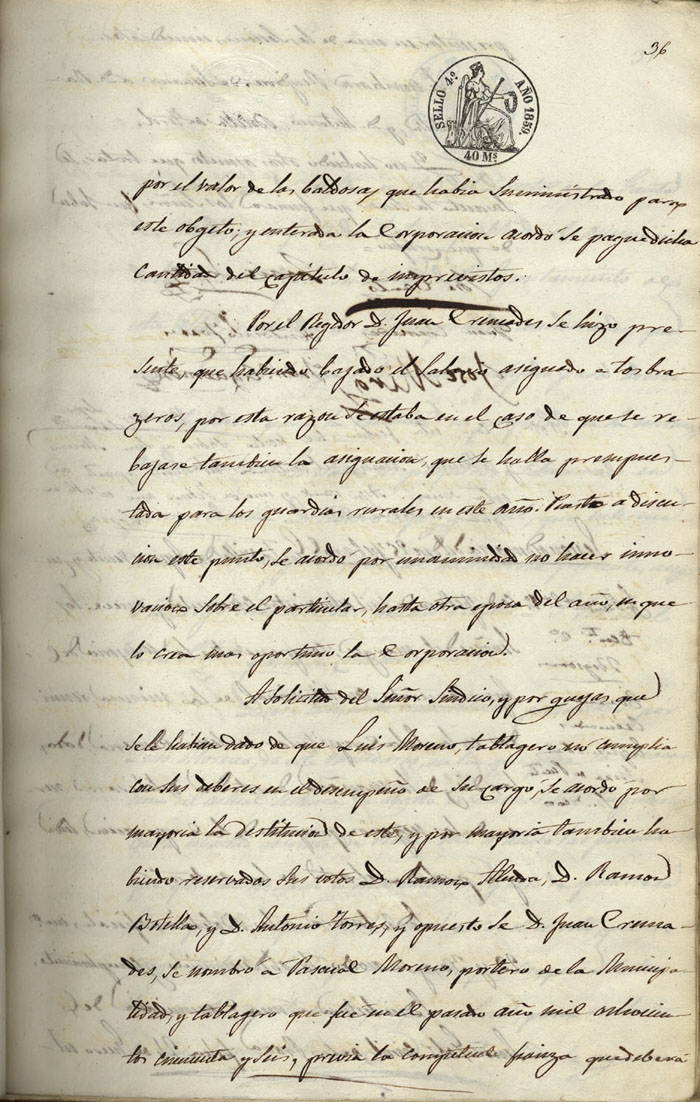 36
SELLO 4º AÑO 1859.
40 Ms
por el valor de las baldosas, que habia Suministrado para
este objeto; y enterada la Corporacion acordó se pague dicha
Cantidad del capítulo de imprevistos.
Por el Regidor D. Juan Cremades se hizo pre-
sente, que habiendo bajado el Salario asignado a los bra-
zeros, por esta razon se estaba en el caso de que se re-
bajase tambien la asignacion, que se halla presupues-
tada para los guardias rurales en este año. Puesto a discu-
cion este punto, se acordó por unanimidad no hacer inno-
vacion sobre el particular, hasta otra epoca del año, en que
lo crea mas oportuno la Corporacion.
A solicitud del Señor Sindico, y por quejas que
se le habian dado de que Luis Moreno, tablagero no cumplia
con sus deberes en el desempeño de su cargo, se acordó por
mayoria la destitucion de este, y por mayoria tambien ha-
biendo reservado sus votos D. Ramon D. Ramon
Botella, y D. Antonio Torres, y opuesto se D. Juan Crema-
des, se nombró a Pascual Moreno, portero de la Municipa-
lidad, y tablagero que fue en el pasado año mil ochocien-
tos cincuenta y seis, previa la competente fianza que deberá